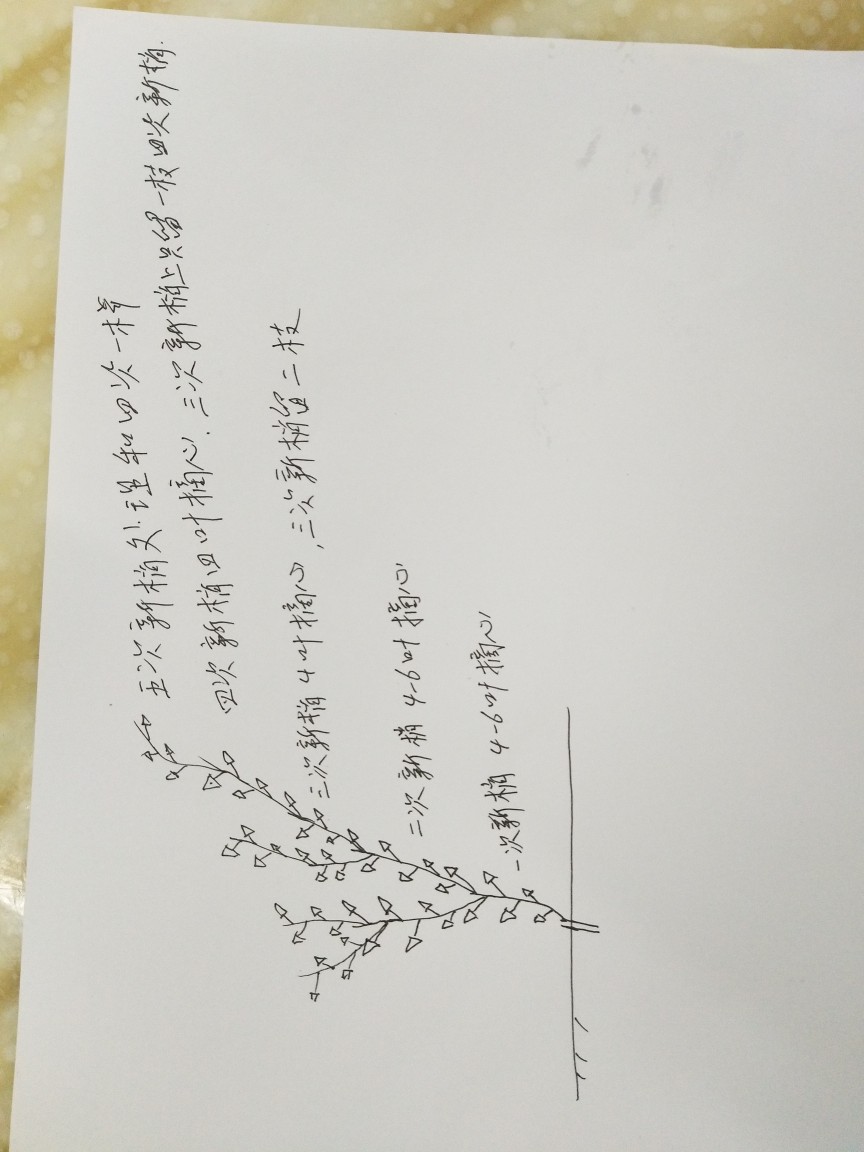 五次新梢处理和四次一样
四次新梢四叶摘心.三次新梢上只留一枝四次新梢.
三次新梢4叶摘心,三次新梢留二枝
二次新梢4-6叶摘心
一次新梢4-6叶摘心